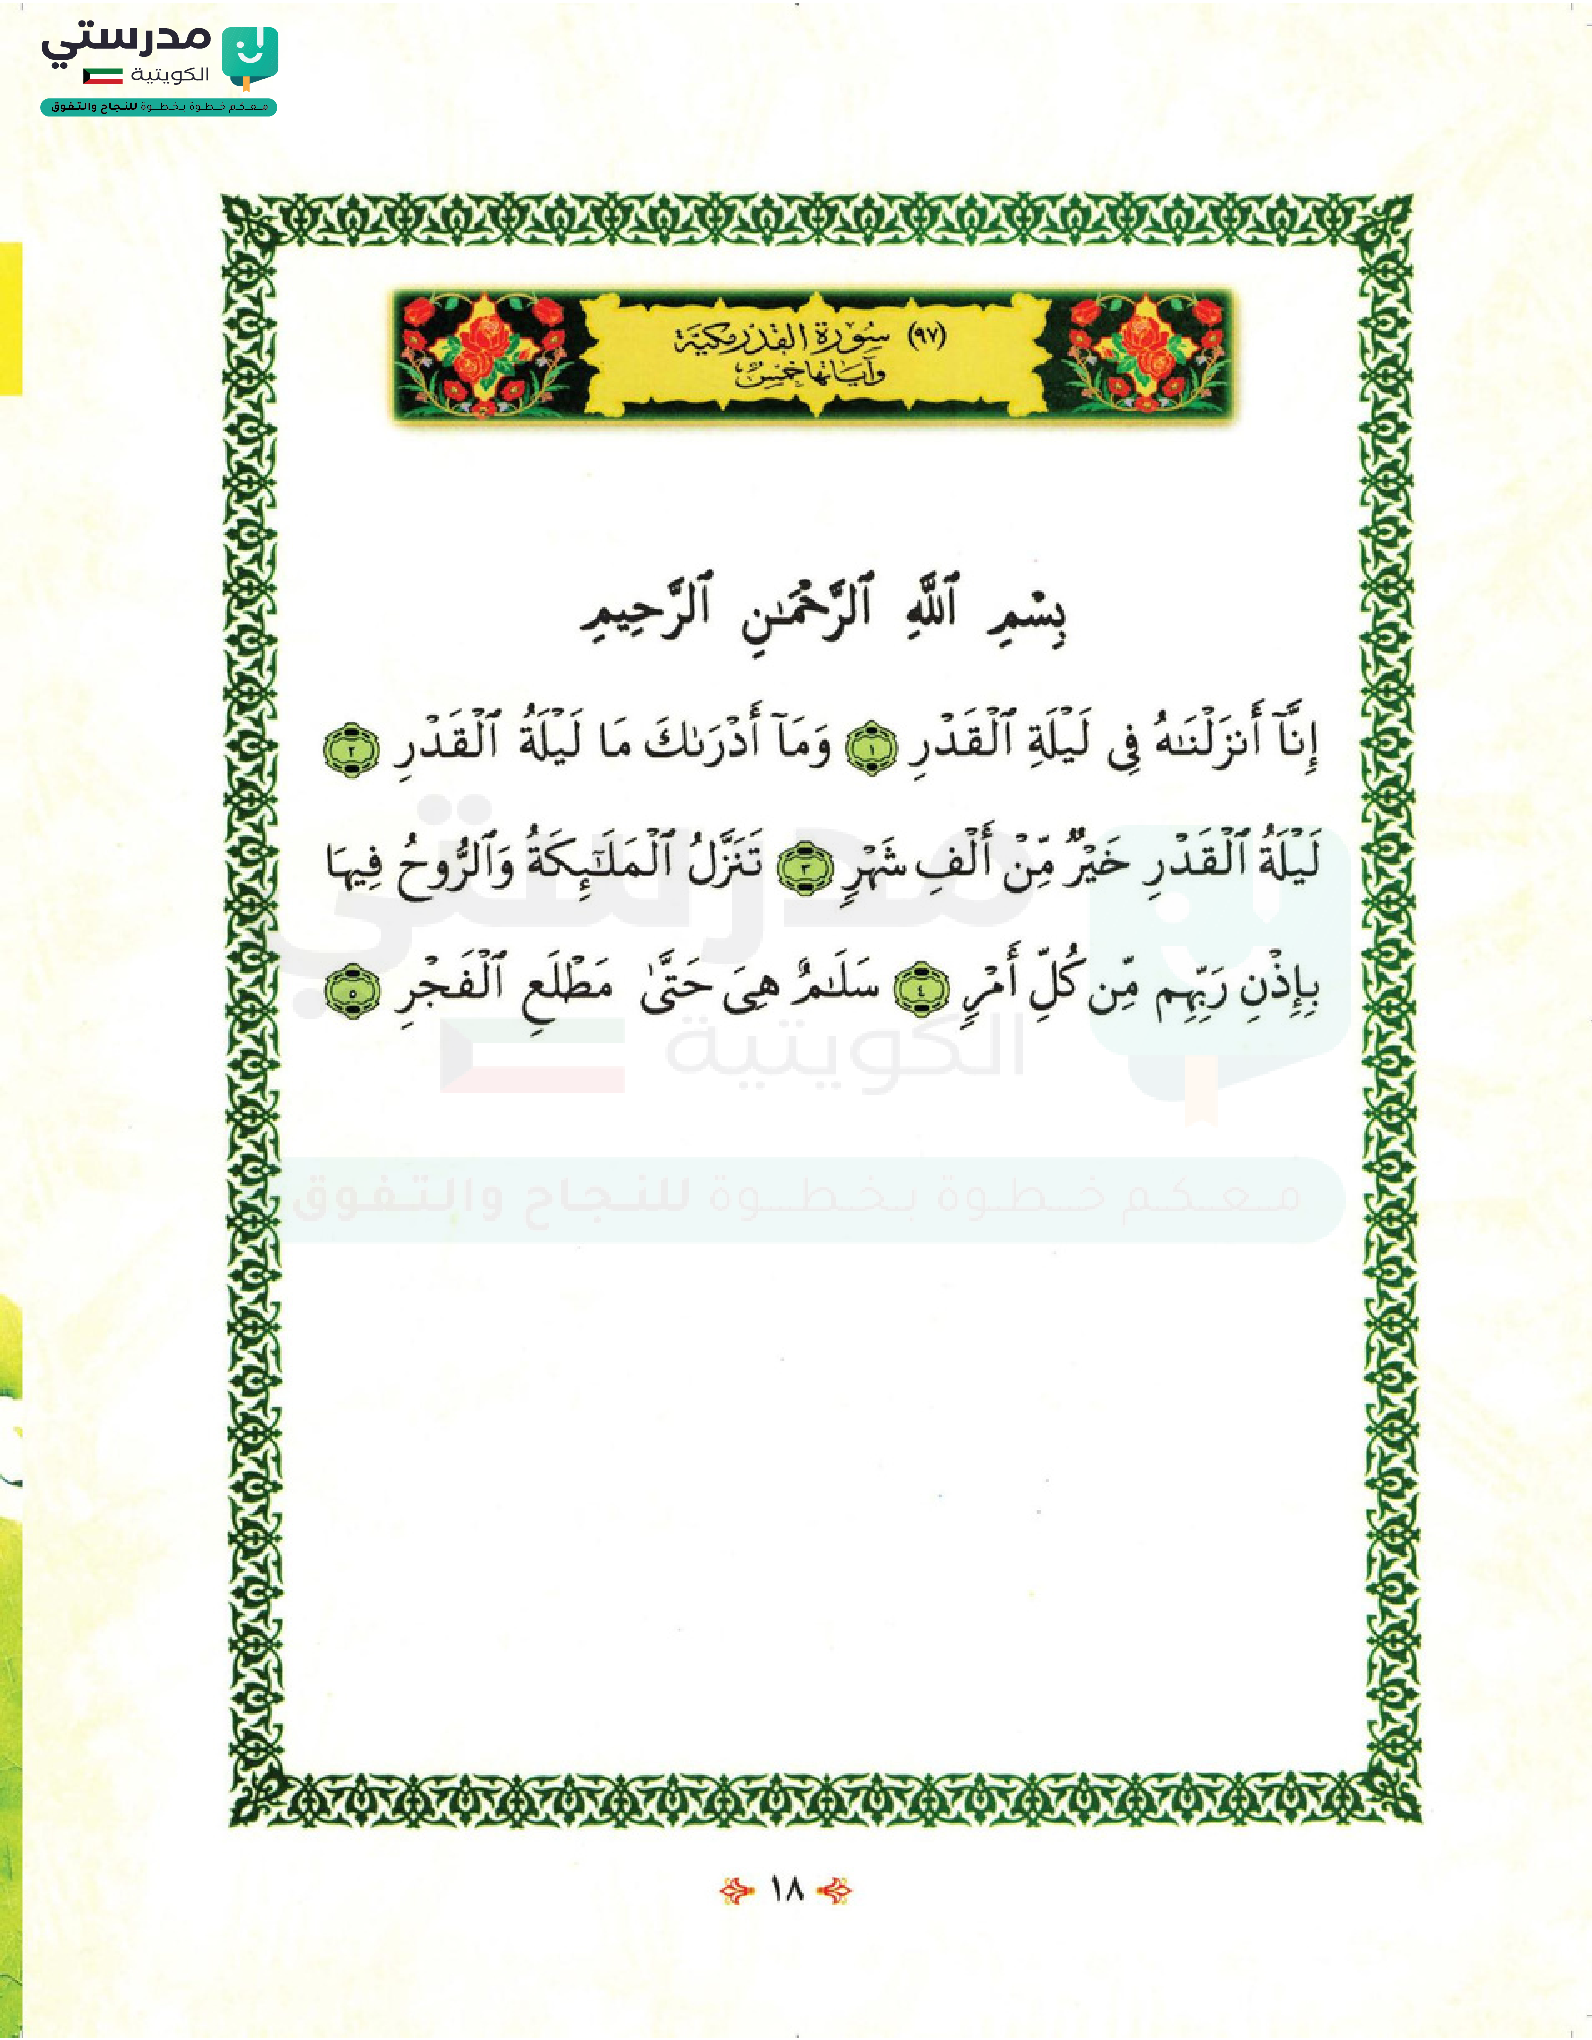 مدرستي
الكويتية
معكم خطوة بخطوة للنجاح والتفوق
(٩٧) سُورَة القَدْر مكيّة
وآيَاتها خمسٌ
بِسْمِ ٱللَّهِ ٱلرَّحْمَٰنِ ٱلرَّحِيمِ
إِنَّآ أَنزَلْنَٰهُ فِى لَيْلَةِ ٱلْقَدْرِ ١ وَمَآ أَدْرَىٰكَ مَا لَيْلَةُ ٱلْقَدْرِ ٢
لَيْلَةُ ٱلْقَدْرِ خَيْرٌ مِّنْ أَلْفِ شَهْرٍ ٣ تَنَزَّلُ ٱلْمَلَٰٓئِكَةُ وَٱلرُّوحُ فِيهَا
بِإِذْنِ رَبِّهِم مِّن كُلِّ أَمْرٍ ٤ سَلَٰمٌ هِىَ حَتَّىٰ مَطْلَعِ ٱلْفَجْرِ ٥
مدرستي
الكويتية
معكم خطوة بخطوة للنجاح والتفوق
١٨